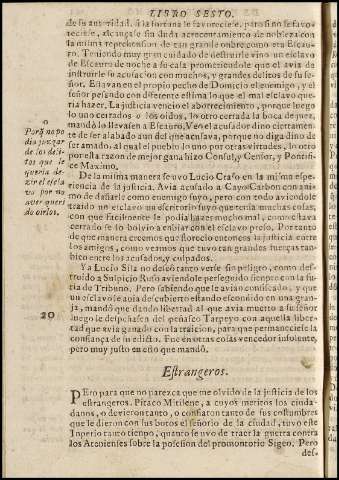 LIBRO SESTO.
de su autoridad, si la fortuna le favoreciese, pero si no se favo-
reciese, alcançase sin duda acrecentamiento de nobleza con
la misma reprehension de tan grande onbre como era Escau-
ro. Teniendo muy gran cuidado de destruirle vino un esclavo
de Escauro de noche a su casa prometiendole que el avia de
instruirle su acusacion con muchos, y grandes delitos de su se-
ñor. Estavan en el propio pecho de Domicio el enemigo, y el
señor pesando con diferente estima lo que el mal esclavo que-
ria hazer. La justicia vencio el aborrecimiento, porque luego
lo uno cerrados los oidos, lo otro cerrada la boca de juez,
mandò lo llevasen a Escauro. Ved el acusador dino ciertamen-
te de ser alabado aun del que acusava, porque no diga dino de
ser amado, al qual el pueblo lo uno por otras virtudes, lo otro
por esta razon de mejor gana hizo Consul, y Censor, y Pontifi-
ce Maximo.
De la misma manera se uvo Lucio Craso en la misma espe-
riencia de la justicia. Avia acusado a Cayo Carbon con ani-
mo de dañarle como enemigo suyo, pero con todo aviendole
traido un esclavo su escritorio suyo que tenia muchas cosas,
con que facilmente le podia hazer mucho mal, como estava
cerrado se lo bolvio a enbiar con el esclavo preso. Por tanto
de que manera creemos que florecio entonces la justicia entre
los amigos, como vemos que tuvo tan grandes fuerças tan-
bien entre los acusados, y culpados.
Ya Lucio Sila no deseò tanto verse sin peligro, como des-
truido a Sulpicio Rufo aviendole perseguido sienpre con la fu-
ria de Tribuno. Pero sabiendo que le avian confiscado, y que
un esclavo le avia descubierto estando escondido en una gran-
ja, mandò que dando libertad al que avia muerto a su señor
luego le despeñasen del peñasco Tarpeyo con aquella liber-
tad que avia ganado con la traicion, para que permaneciese la
confiança de su edicto. Fue en otras cosas vencedor insolente,
pero muy justo en esto que mandò.
o
Porq̃ no po
dia juzgar
de los deli-
tos que le
queria de-
zir el escla
vo por no
aver queri
do oirlos.
20
Estrangeros.
PEro para que no parezca que me olvido de la justicia de los
estrangeros. Pitaco Mitilene, a cuyos meritos los ciuda-
danos, o devieron tanto, o confiaron tanto de sus costunbres
que le dieron con sus botos el señorio de la ciudad, tuvo este
Inperio tanto tienpo, quanto se uvo de traer la guerra contra
los Atenienses sobre la posesion del promontorio Sigeo. Pero
des-